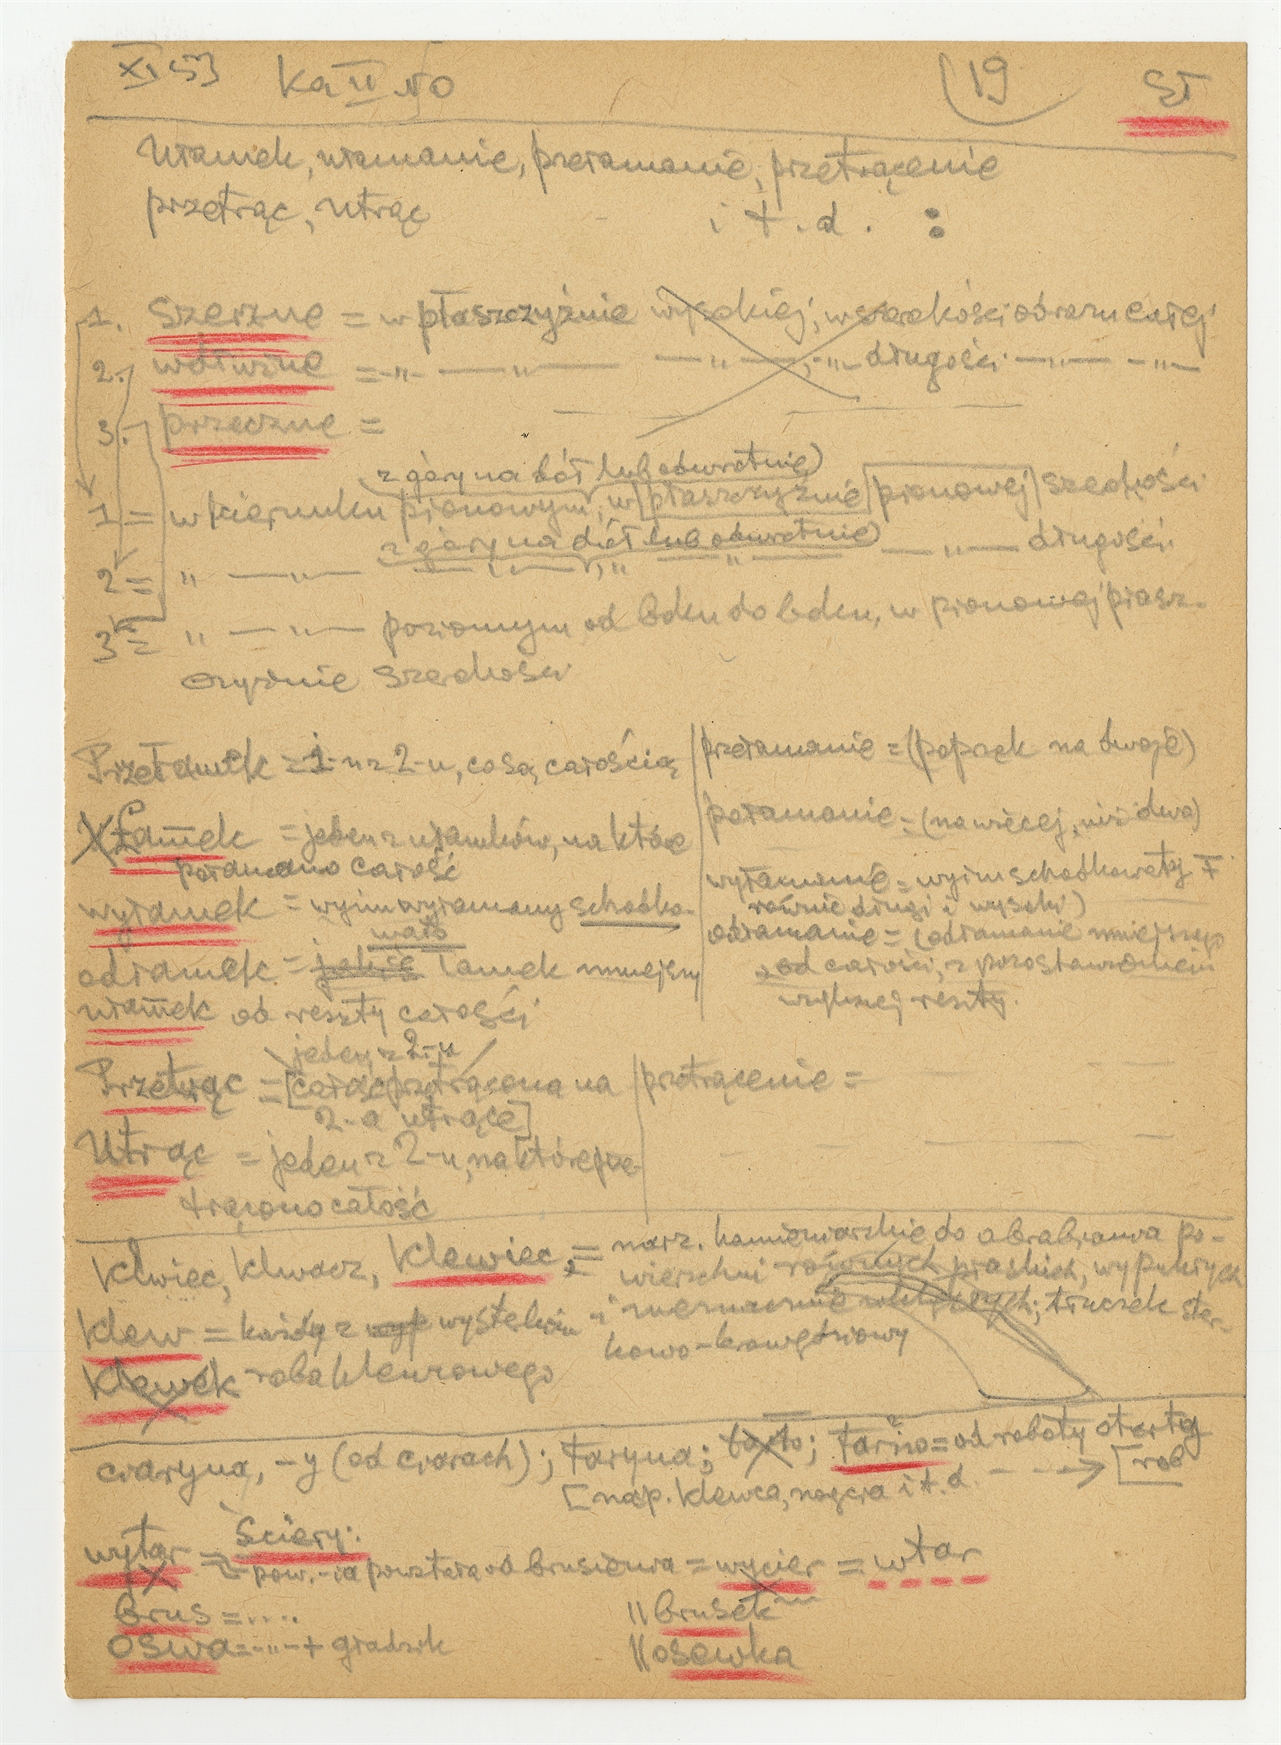 XI 53 Ka II No 19 ST
Ułamek, ułamanie, przełamanie, przetrącenie
przetrąc, utrąc i t. d. :
1. szerzne = w płaszczyźnie wysokiej, w szerokości obrazu całej
2. wdłużne = -"- —"— —"— -"- długości —"— -"-
3. przeczne =
z góry na dół lub odwrotnie)
1 = w kierunku pionowym, w płaszczyźnie pionowej szerokości
z góry na dół lub odwrotnie)
2 = " —"— —"— " —"— —"— długości
3 = " —"— poziomym od boku do boku, w pionowej płasz-
czyźnie szerokości
Przełamek = 1-n z 2-u, co są całością
przełamanie = (poprzek na dwoje)
X Łamek = jeden z ułamków, na które
połamano całość
połamanie = (na więcej, niż dwa)
wyłamek = wyim wyłamany schodko-
wato
wyłamanie = wyim schodkowaty
równie długi i wysoki)
odłamek = jakiś łamek mniejszy
ułamek od reszty całości
odłamanie = (odłamanie mniejszego
od całości, z pozostawieniem
większej reszty.
jeden z 2-u
Przetrąc = [całość przetrącona na
2-a utrące]
przetrącenie =
Utrąc = jeden z 2-u, na które prze-
trącono całość
Klwiec, klwacz, Klewiec, = narz. kamieniarskie do obrabiania po-
wierzchni równych płaskich, wypukłych
i nieznacznie wklęsłych; tłuczek ster-
kowo-krawędziowy
Klew = każdy z wyp wystełków
Klewek robaklewcowego
czaryna, -y (od czarach); taryna; tarło; tarno = od roboty otartej
[nap. klewca, nogcia i t. d. - - -> [rob
wytar = Ściery:
pow.-ia powstała od brusiowa = wycier = wtar
brus = .... || brusek
oswa = -"- + gradzik || osewka